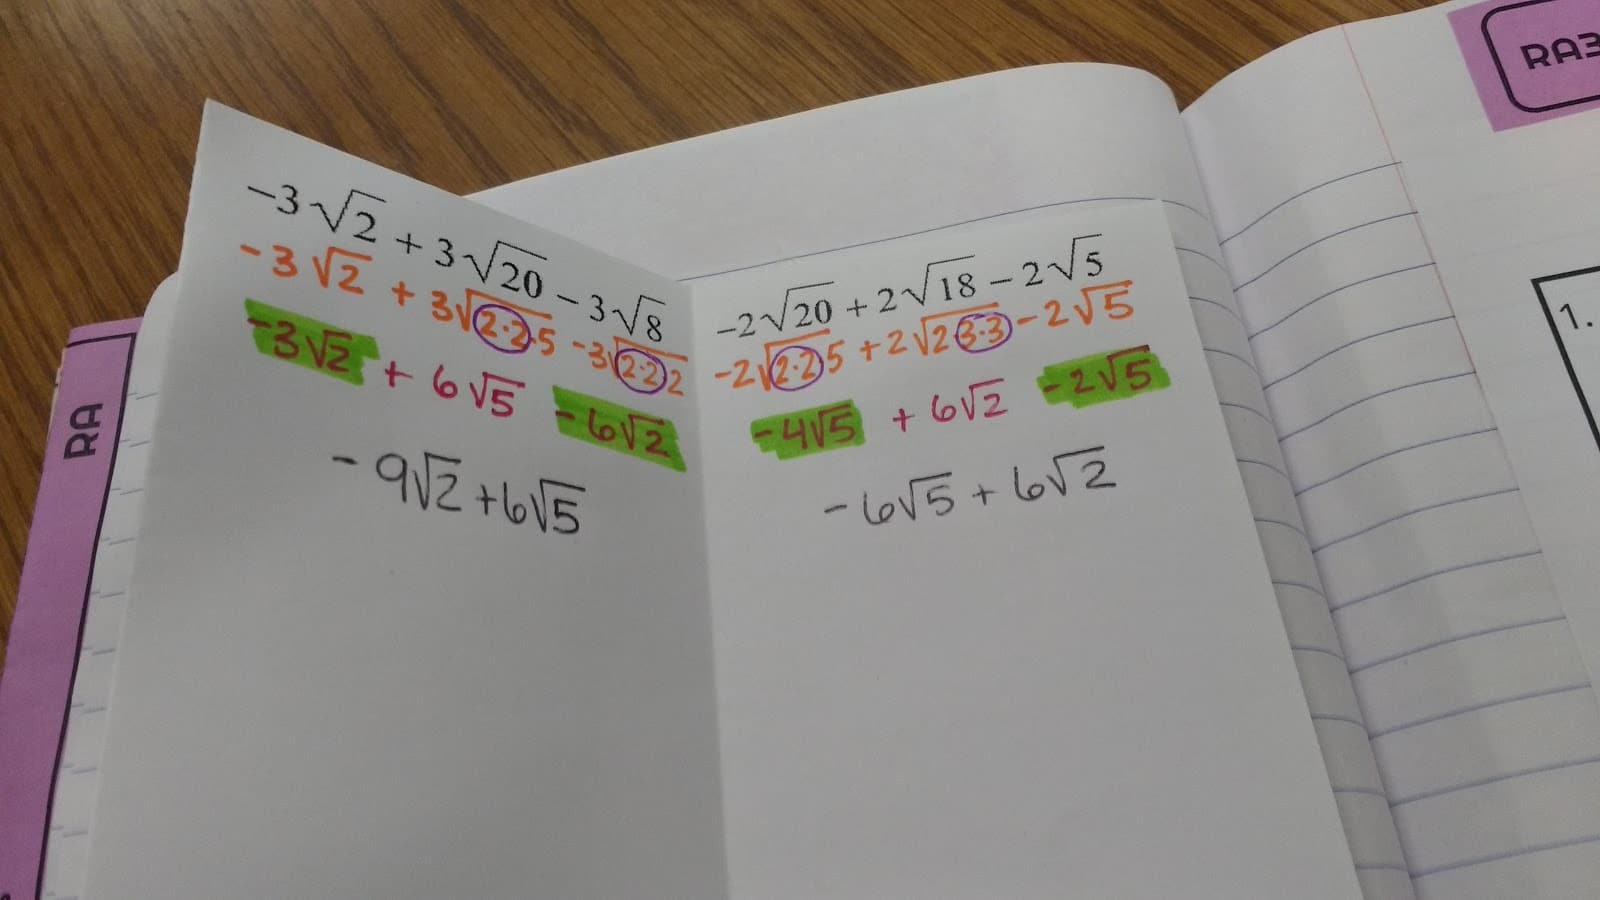 -3√2 + 3√20 - 3√8
-3√2 + 3√2·2·5 -3√2·2 2
-3√2 + 6√5 -6√2
-9√2 +6√5
-2√20 + 2√18 - 2√5
-2√2·2·5 +2√2 3·3 -2√5
-4√5 + 6√2 -2√5
-6√5 + 6√2
RA
1.